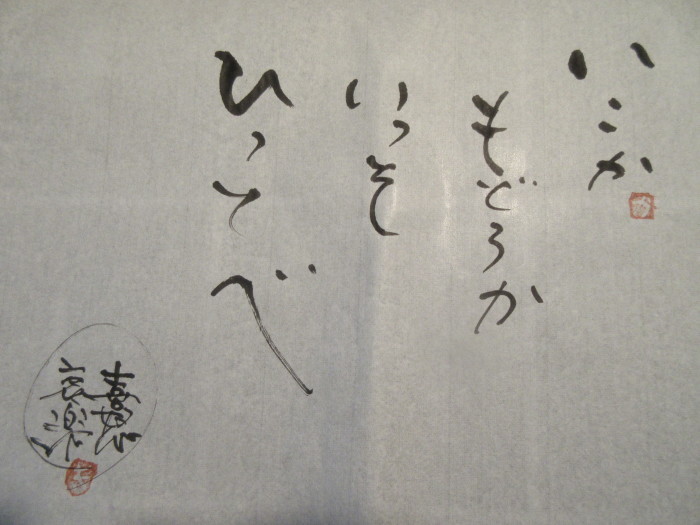 いこか
もどろか
いっそ
ひってべ
喜怒
哀楽